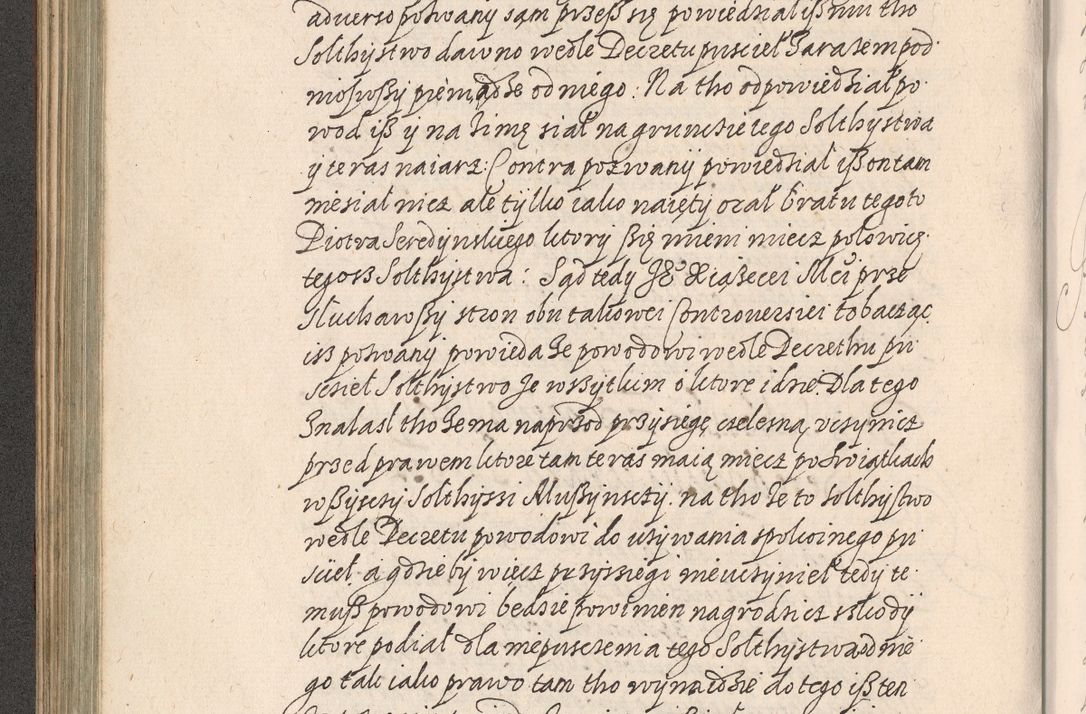 aduerso pozwany sam przeß się powiedział iß mu tho
Solthystwo dawno wedle Decretu puscieł zarazem pod
niowßy pieniądze od niego: Na tho odpowiedział po
wod iß y na zimę siał na gruncie tego Solthystwa
y teras naiarz: Contra pozwany powiedział iß on tam
niesiał nicz ale tylko iako naięty orał bratu tegoto
Piotra Seredynskiego ktory ßię mieni miecz polowicę
tegosz Solthystwa: Sąd tedy Je° Xiążecei Mci prze
słuchawßy stron obu takowei Controuersiei tobacząc
isz pozwany powieda że powodowi wedle Decrethu pu
sciel Solthystwo ze wszytkim o ktore idzie. Dla tego
Znalasl tho że ma naprzod przysięgę czelesną vczynicz
przed prawem ktore tam teras maią miecz po Swiątkach
wßyscy Solthyssi Mußynsczy. na tho że to solthystwo
wedle Decretu powodowi do używania spokoinego pu
sciel. a gdzieby więcz przysięgi nieuczynieł tedy te
muß powodowi będzie powinien nagrodzicz szkody
ktore podiał dla niepusczenia tego Solthystwa od nie
go tak iako prawo tam tho wynaidzie do tego iß ten